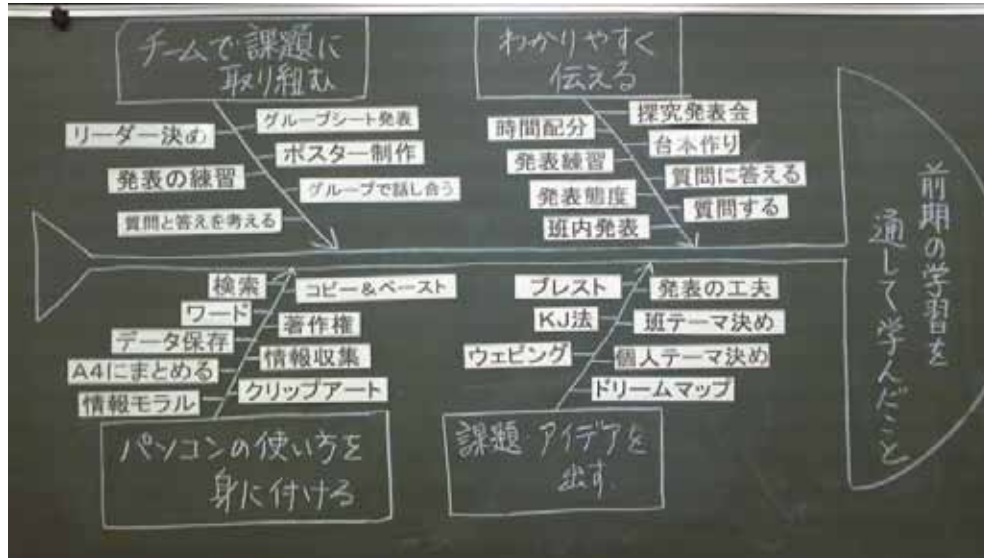 チームで課題に
取り組む
リーダー決め
グループシート発表
発表の練習
ポスター制作
質問と答えを考える
グループで話し合う
わかりやすく
伝える
時間配分
探究発表会
発表練習
台本作り
発表態度
質問に答える
班内発表
質問する
検索
コピー&ペースト
ワード
著作権
データ保存
情報収集
A4にまとめる
クリップアート
情報モラル
パソコンの使い方を
身に付ける
ブレスト
発表の工夫
KJ法
班テーマ決め
ウェビング
個人テーマ決め
ドリームマップ
課題 アイデアを
出す
前期の学習を
通して学んだこと